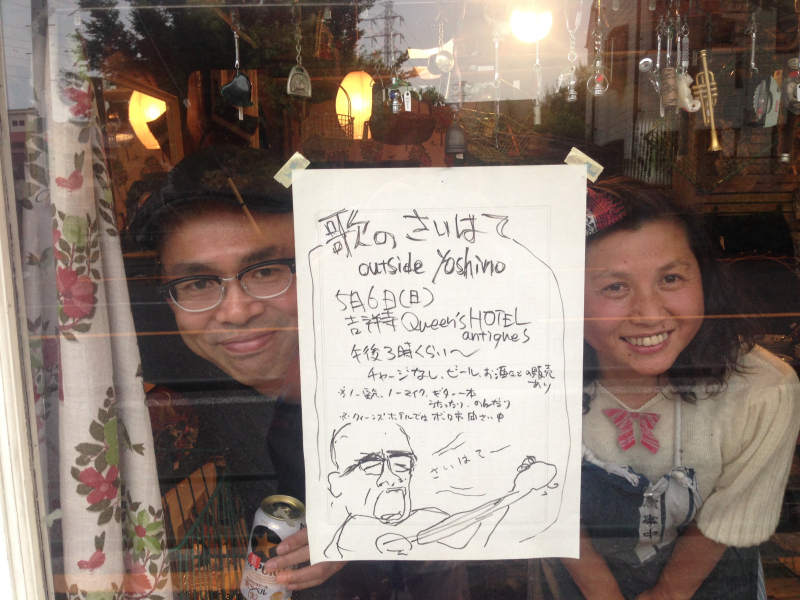 歌のさいはて
outside yoshino
5月6日(日)
吉祥寺 Queen's HOTEL
antiques
午後3時くらい〜
チャージなし、ビール、お酒などの販売
あり
※ノー電気、ノーマイク、ギター一本
うたったり、のんだり
※クイーンズホテルではボロ市開さい中
さいはてー